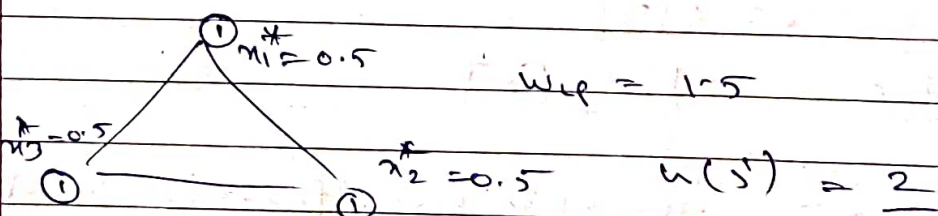 ①
x₁* = 0.5
w_LP = 1.5
x₃* = 0.5
x₂* = 0.5
w(S) = 2
①
①